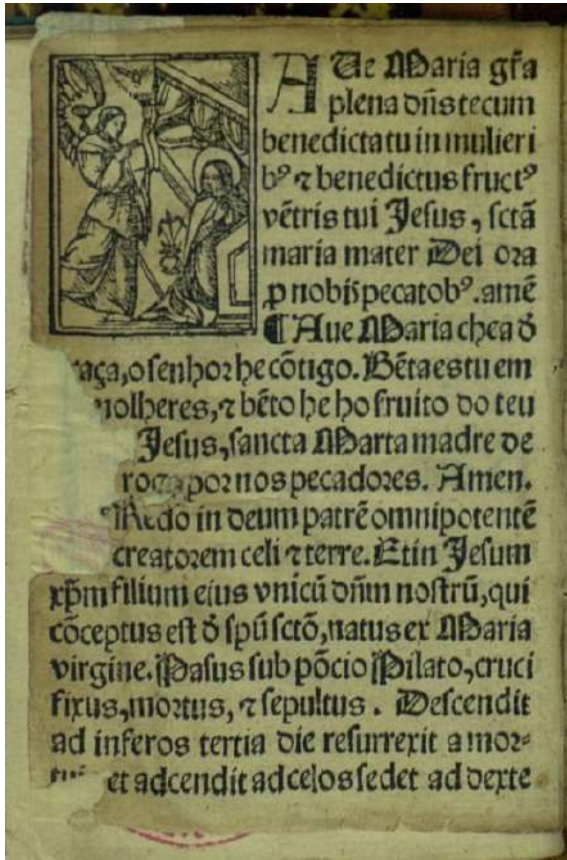 AUe Maria gr̃a
plena dñs tecum
benedicta tu in mulieri
bꝰ ⁊ benedictus fructꝰ
vẽtris tui Jesus, sctã
maria mater Dei ora
ꝓ nobis pecatobꝰ. amẽ
¶ Aue Maria chea đ
raça, o senhor he cõtigo. Bẽta es tu em
molheres, ⁊ bẽto he ho fruito do teu
Jesus, sancta Maria madre de
roga por nos pecadores. Amen.
Redo in deum patrẽ omnipotentẽ
creatorem celi ⁊ terre. Et in Jesum
xp̃m filium eius vnicũ dñm nostrũ, qui
cõceptus est đ spũ sctõ, natus ex Maria
virgine. Pasus sub põcio Pilato, cruci
fixus, mortus, ⁊ sepultus. Descendit
ad inferos tertia die resurrexit a mor-
et adcendit ad celos sedet ad dexte